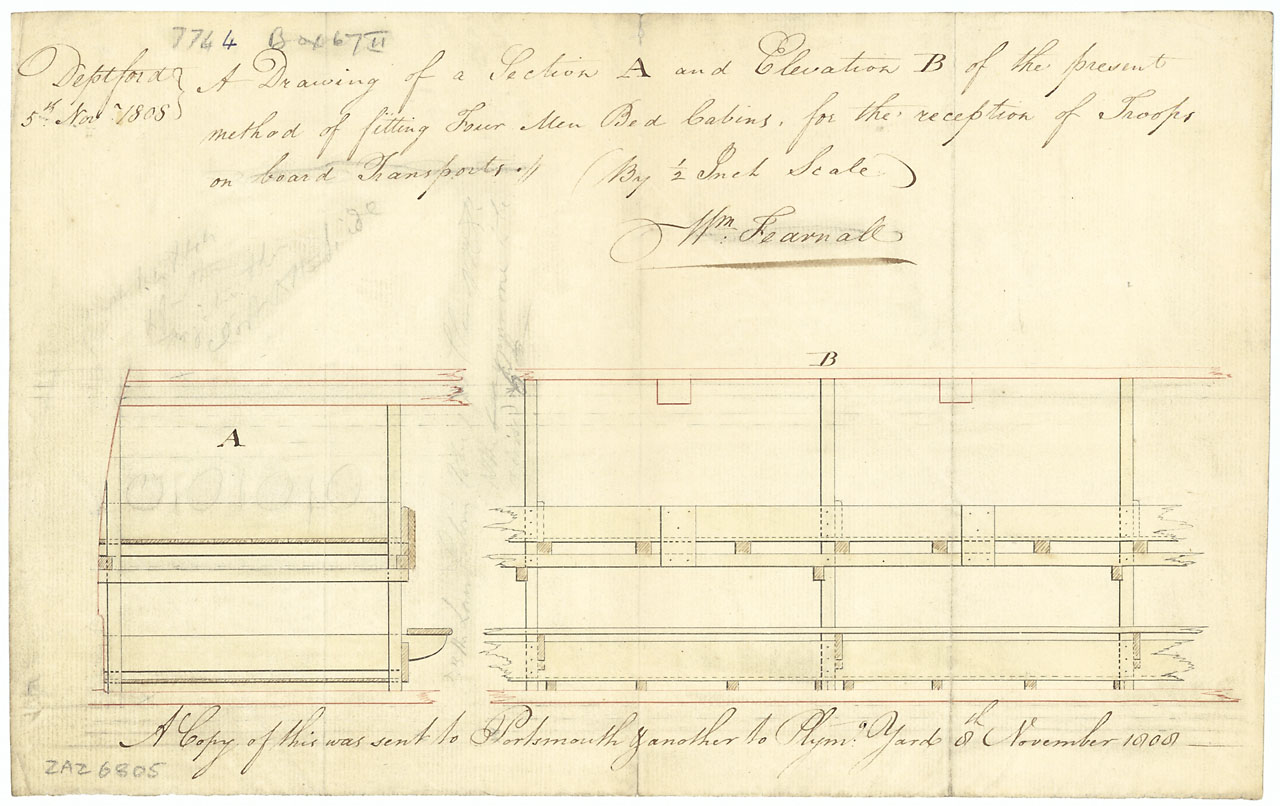 7764 Box 67 II
Deptford
5th Novr 1808
A Drawing of a Section A and Elevation B of the present
method of fitting Four Men Bed Cabins, for the reception of Troops
on board Transports.
(By ½ Inch Scale)
Wm. Fearnall
B
A
A Copy of this was sent to Portsmouth & another to Plymo. Yard 8th November 1808
ZAZ6805